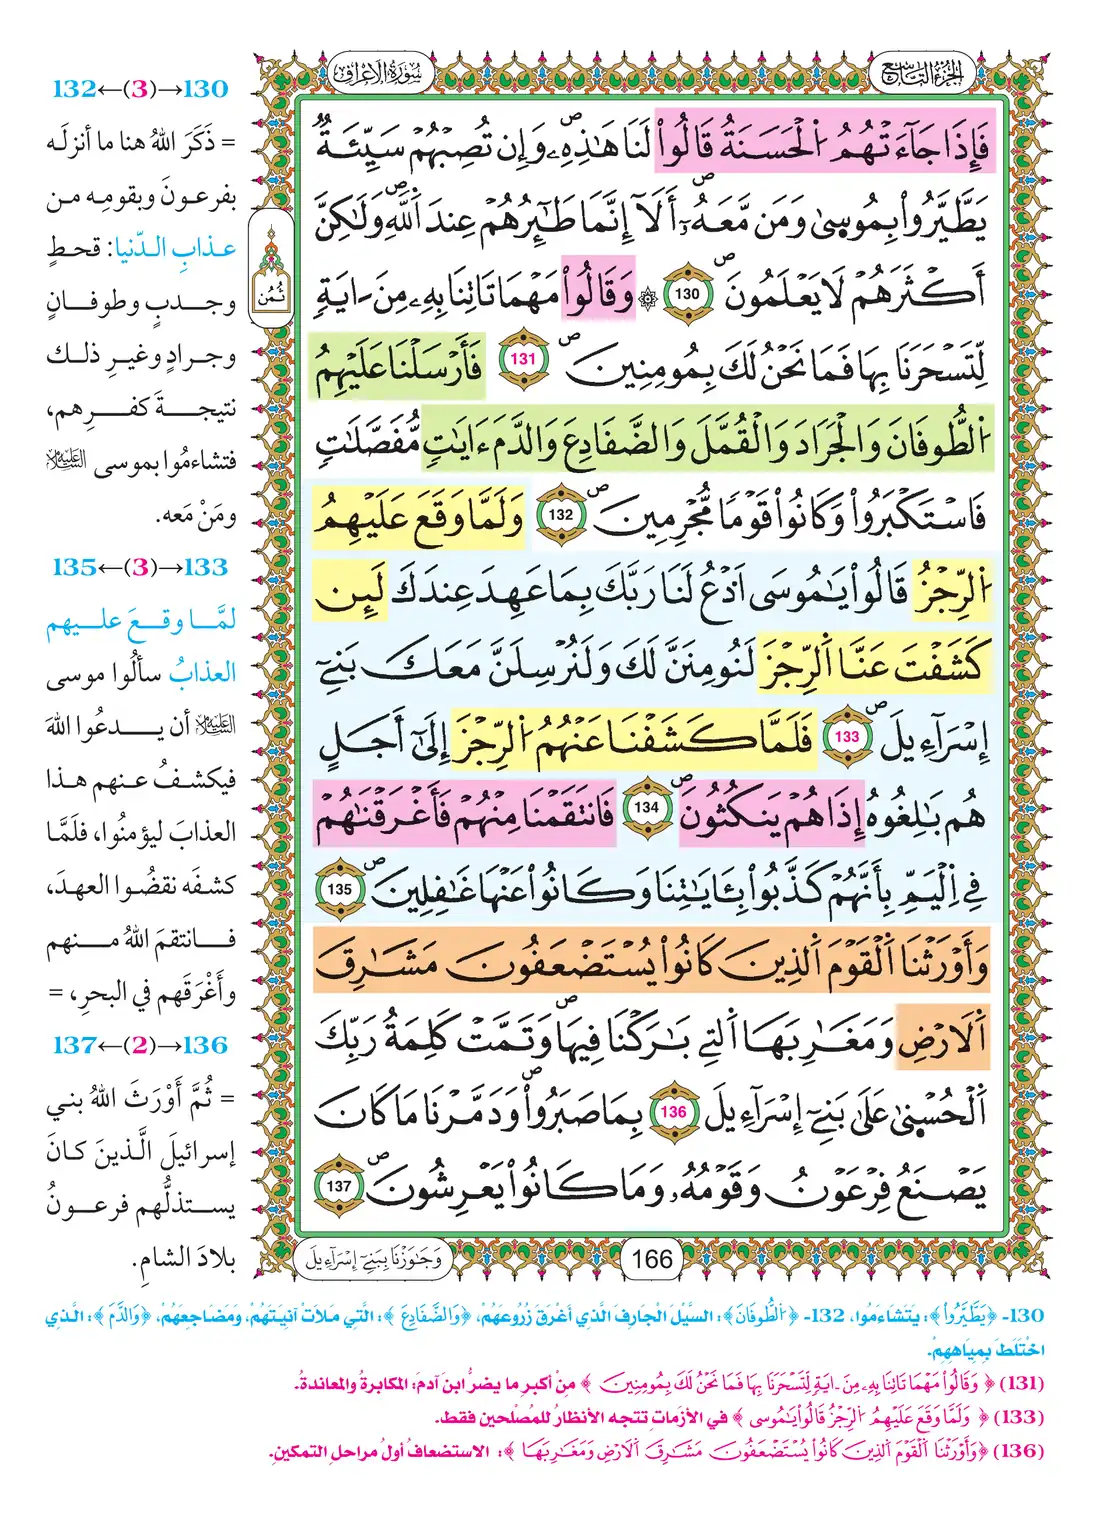 الجزء التاسع
سورة الأعراف
فَإِذَا جَآءَتْهُمُ اُ۬لْحَسَنَةُ قَالُواْ لَنَا هَٰذِهِۦۖ وَإِن تُصِبْهُمْ سَيِّئَةٞ
يَطَّيَّرُواْ بِمُوسَىٰ وَمَن مَّعَهُۥٓۖ أَلَآ إِنَّمَا طَٰٓئِرُهُمْ عِندَ اَ۬للَّهِۖ وَلَٰكِنَّ
أَكْثَرَهُمْ لَا يَعْلَمُونَۖ 130 ۞ وَقَالُواْ مَهْمَا تَاتِنَا بِهِۦ مِنَ ـايَةٖ
لِّتَسْحَرَنَا بِهَا فَمَا نَحْنُ لَكَ بِمُومِنِينَۖ 131 فَأَرْسَلْنَا عَلَيْهِمُ
اُ۬لطُّوفَانَ وَالْجَرَادَ وَالْقُمَّلَ وَالضَّفَادِعَ وَالدَّمَ ءَايَٰتٖ مُّفَصَّلَٰتٖ
فَاسْتَكْبَرُواْ وَكَانُواْ قَوْماٗ مُّجْرِمِينَۖ 132 وَلَمَّا وَقَعَ عَلَيْهِمُ
اُ۬لرِّجْزُ قَالُواْ يَٰمُوسَى اَ۟دْعُ لَنَا رَبَّكَ بِمَا عَهِدَ عِندَكَ لَئِن
كَشَفْتَ عَنَّا اَ۬لرِّجْزَ لَنُومِنَنَّ لَكَ وَلَنُرْسِلَنَّ مَعَكَ بَنِےٓ
إِسْرَآءِيلَۖ 133 فَلَمَّا كَشَفْنَا عَنْهُمُ اُ۬لرِّجْزَ إِلَىٰٓ أَجَلٍ
هُم بَٰلِغُوهُ إِذَا هُمْ يَنكُثُونَۖ 134 فَانتَقَمْنَا مِنْهُمْ فَأَغْرَقْنَٰهُمْ
فِے اِ۬لْيَمِّ بِأَنَّهُمْ كَذَّبُواْ بِـَٔايَٰتِنَا وَكَانُواْ عَنْهَا غَٰفِلِينَۖ 135
وَأَوْرَثْنَا اَ۬لْقَوْمَ اَ۬لذِينَ كَانُواْ يُسْتَضْعَفُونَ مَشَٰرِقَ
اَ۬لَارْضِ وَمَغَٰرِبَهَا اَ۬لتِے بَٰرَكْنَا فِيهَاۖ وَتَمَّتْ كَلِمَةُ رَبِّكَ
اَ۬لْحُسْنَىٰ عَلَىٰ بَنِےٓ إِسْرَآءِيلَ 136 بِمَا صَبَرُواْۖ وَدَمَّرْنَا مَا كَانَ
يَصْنَعُ فِرْعَوْنُ وَقَوْمُهُۥ وَمَا كَانُواْ يَعْرِشُونَۖ 137
166
وَجَٰوَزْنَا بِبَنِےٓ إِسْرَآءِيلَ
ثُمُن
130→(3)←132
= ذَكَرَ اللهُ هنا ما أنزلَه
بفرعونَ وبقومِه من
عذابِ الدّنيا: قحطٍ
وجدبٍ وطوفانٍ
وجرادٍ وغيرِ ذلك
نتيجةَ كفرِهم،
فتشاءمُوا بموسى عليه السلام
ومَنْ مَعه.
133→(3)←135
لمَّا وقعَ عليهم
العذابُ سألُوا موسى
عليه السلام أن يدعُوا اللهَ
فيكشفُ عنهم هذا
العذابَ ليؤمنُوا، فلَمَّا
كشفَه نقضُوا العهدَ،
فانتقمَ اللهُ منهم
وأغْرَقَهم في البحرِ، =
136→(2)←137
= ثُمَّ أَوْرَثَ اللهُ بني
إسرائيلَ الَّذينَ كانَ
يستذلُّهم فرعونُ
بلادَ الشامِ.
130- ﴿يَطَّيَّرُواْ﴾: يَتَشاءَمُوا، 132- ﴿اُ۬لطُّوفَانَ﴾: السَّيْلَ الْجَارِفَ الَّذي أَغْرَقَ زُرُوعَهُمْ، ﴿وَالضَّفَادِعَ﴾: الَّتي مَلَأتْ آنِيَتَهُمْ، وَمَضَاجِعَهُمْ، ﴿وَالدَّمَ﴾: الَّذي
اخْتَلَطَ بِمِيَاهِهِمْ.
(131) ﴿وَقَالُواْ مَهْمَا تَاتِنَا بِهِۦ مِنَ ـايَةٖ لِّتَسْحَرَنَا بِهَا فَمَا نَحْنُ لَكَ بِمُومِنِينَ﴾ مِنْ أكبرِ ما يضرُّ ابنَ آدمَ: المكابرةُ والمعاندةُ.
(133) ﴿وَلَمَّا وَقَعَ عَلَيْهِمُ اُ۬لرِّجْزُ قَالُواْ يَٰمُوسَى﴾ في الأزَماتِ تتجه الأنظارُ للمُصْلحين فقط.
(136) ﴿وَأَوْرَثْنَا اَ۬لْقَوْمَ اَ۬لذِينَ كَانُواْ يُسْتَضْعَفُونَ مَشَٰرِقَ اَ۬لَارْضِ وَمَغَٰرِبَهَا﴾: الاستضعافُ أولُ مراحلِ التمكينِ.